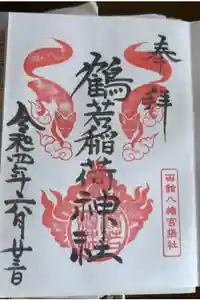 奉拝
函館八幡宮末社
鶴若稲荷神社
令和四年六月廿三日